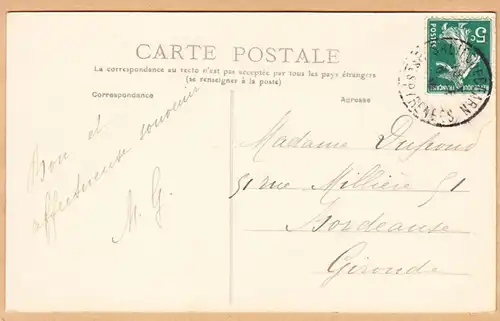 CARTE POSTALE
La correspondance au recto n'est pas acceptée par tous les pays étrangers
(se renseigner à la poste)
Correspondance
Adresse
Bon et
affectueuse souvenir
M. G.
Madame Dupond
51 rue Millière 51
Bordeaux
Gironde
5c
POSTES
RÉPUBLIQUE FRANÇAISE